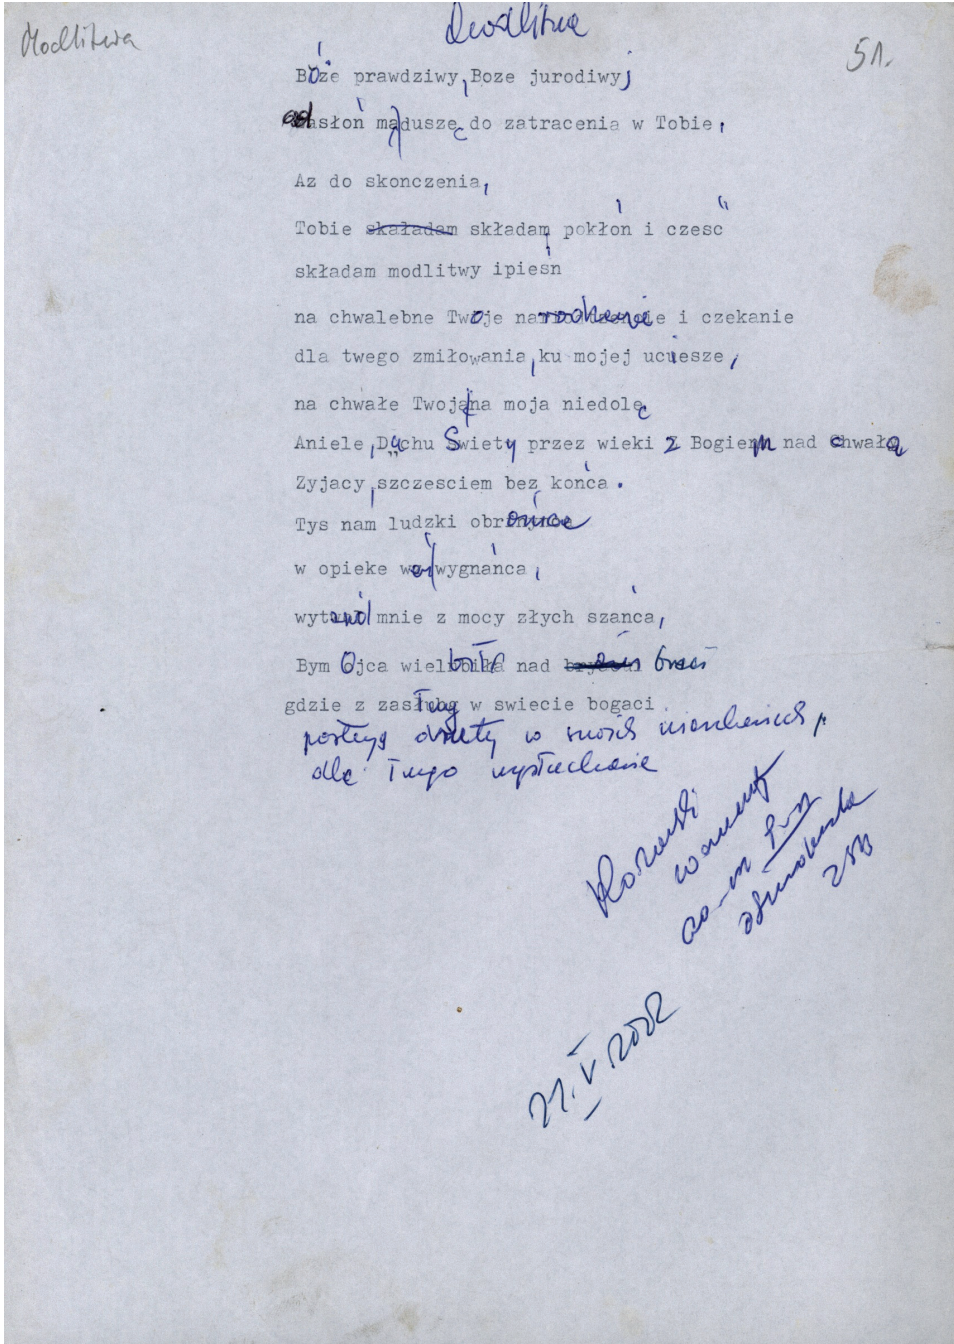 Modlitwa
Modlitwa
51.
Boże prawdziwy, Boze jurodiwyj
odsłoń mą duszę do zatracenia w Tobie,
Az do skonczenia,
Tobie skaładam składam pokłon i czesc
składam modlitwy i pieśn
na chwalebne Twoje narodzenie i czekanie
dla twego zmiłowania, ku mojej uciesze,
na chwałe Twoją na moja niedolę
Aniele, Duchu Swiety przez wieki z Bogiem nad chwałą
Zyjacy, szczesciem bez końca.
Tys nam ludzki obrońca
w opieke weź wygnańca,
wyzwól mnie z mocy złych szańca,
Bym Ojca wielbiła nad braci
gdzie z zasług w swiecie bogaci
w swoich
dla Twego wysłuchania
21. V 2002